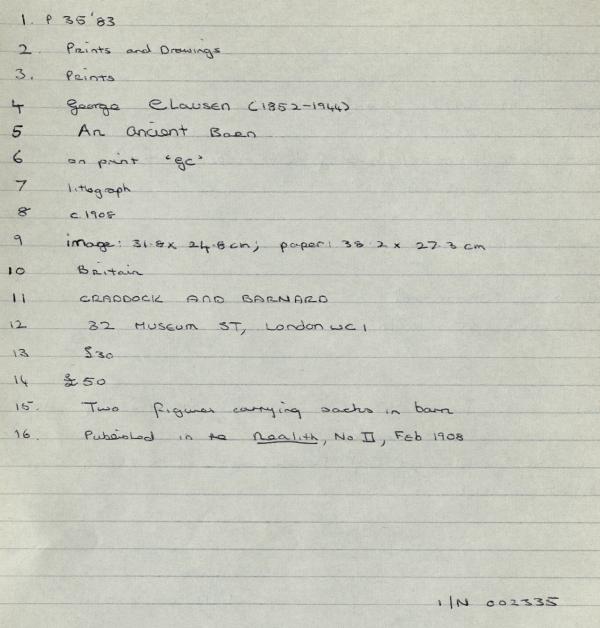 1. P 35'83
2. Prints and Drawings
3. Prints
4 George Clausen (1852-1944)
5 An Ancient Barn
6 on print 'GC'
7 lithograph
8 c.1908
9 image: 31.8 x 24.8 cm; paper: 38.2 x 27.3 cm
10 Britain
11 CRADDOCK AND BARNARD
12 32 MUSEUM ST, London WC1
13 £30
14 £50
15. Two figures carrying sacks in barn
16. Published in the Neolith, No II, Feb 1908
I/N 002335